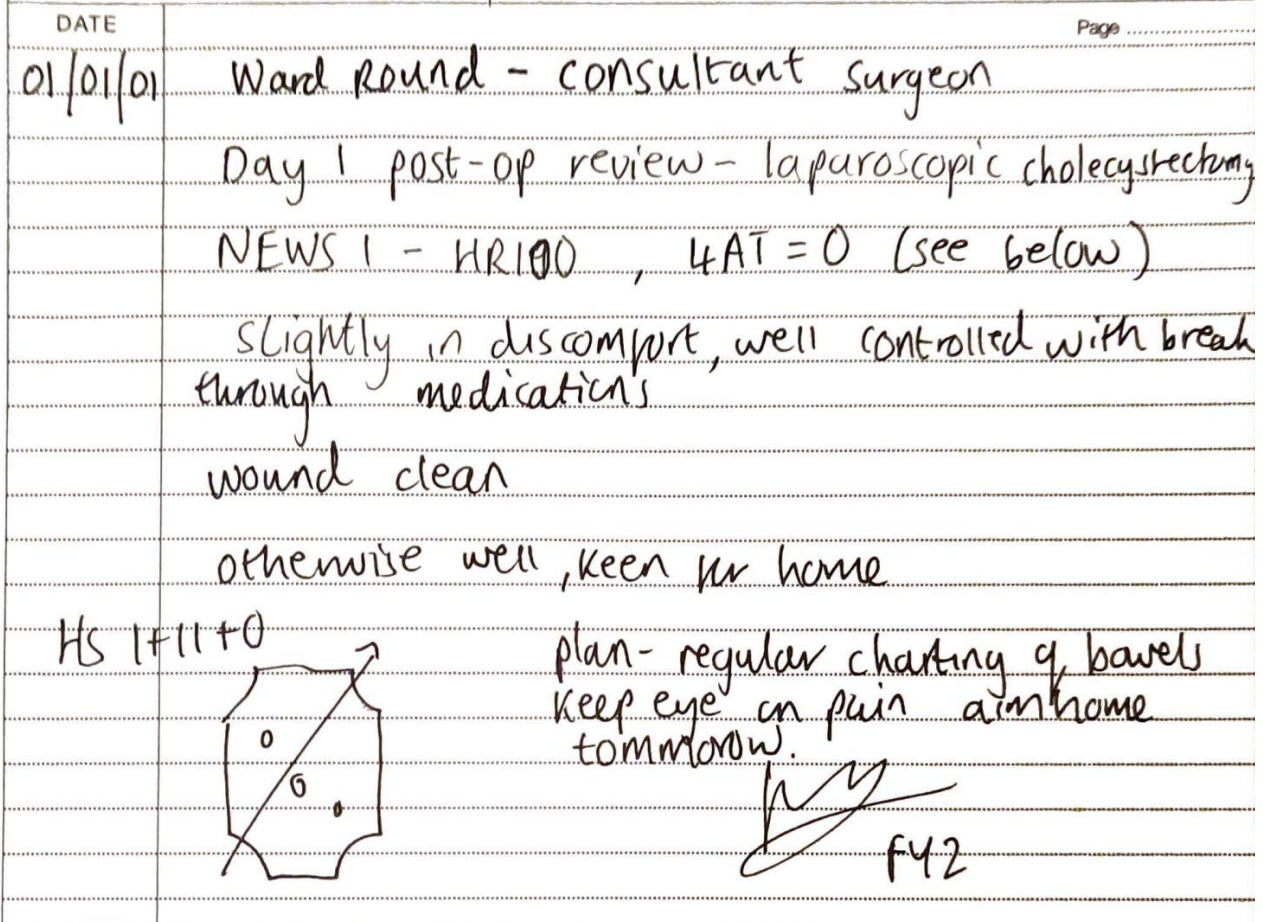 DATE
Page ....................
01/01/01 Ward Round - consultant surgeon
Day 1 post-op review - laparoscopic cholecystectomy
NEWS 1 - HR100 , 4AT = 0 (see below)
slightly in discomfort, well controlled with break
through medications
wound clean
otherwise well, keen for home
HS 1+11+0
plan - regular charting of bowels
keep eye on pain aim home
tommorow.
FY2